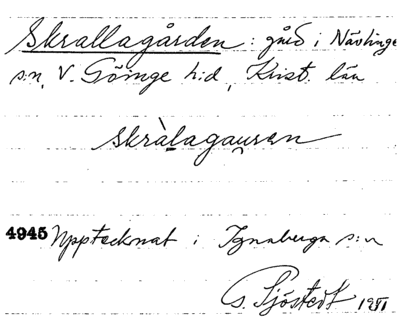 Skrallagården: gård i Nävlinge
sn, V. Göinge h:d, Krist. län
skràlagau̯ṣan
4945 Upptecknat i Ignaberga s:n
G. Sjöstedt 1931